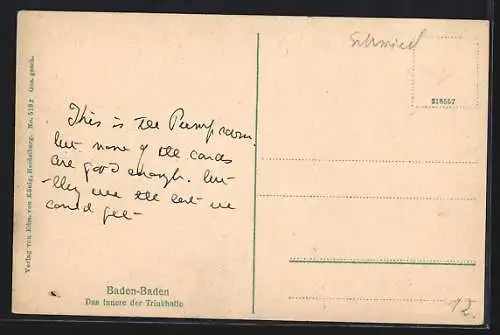 Schmied
218557
This is the Pump room.
but none of the cards
are good enough. but
they are the best we
could get
Verlag von Edm. von König, Heidelberg. No. 519z Ges. gesch.
Baden-Baden
Das Innere der Trinkhalle
12.